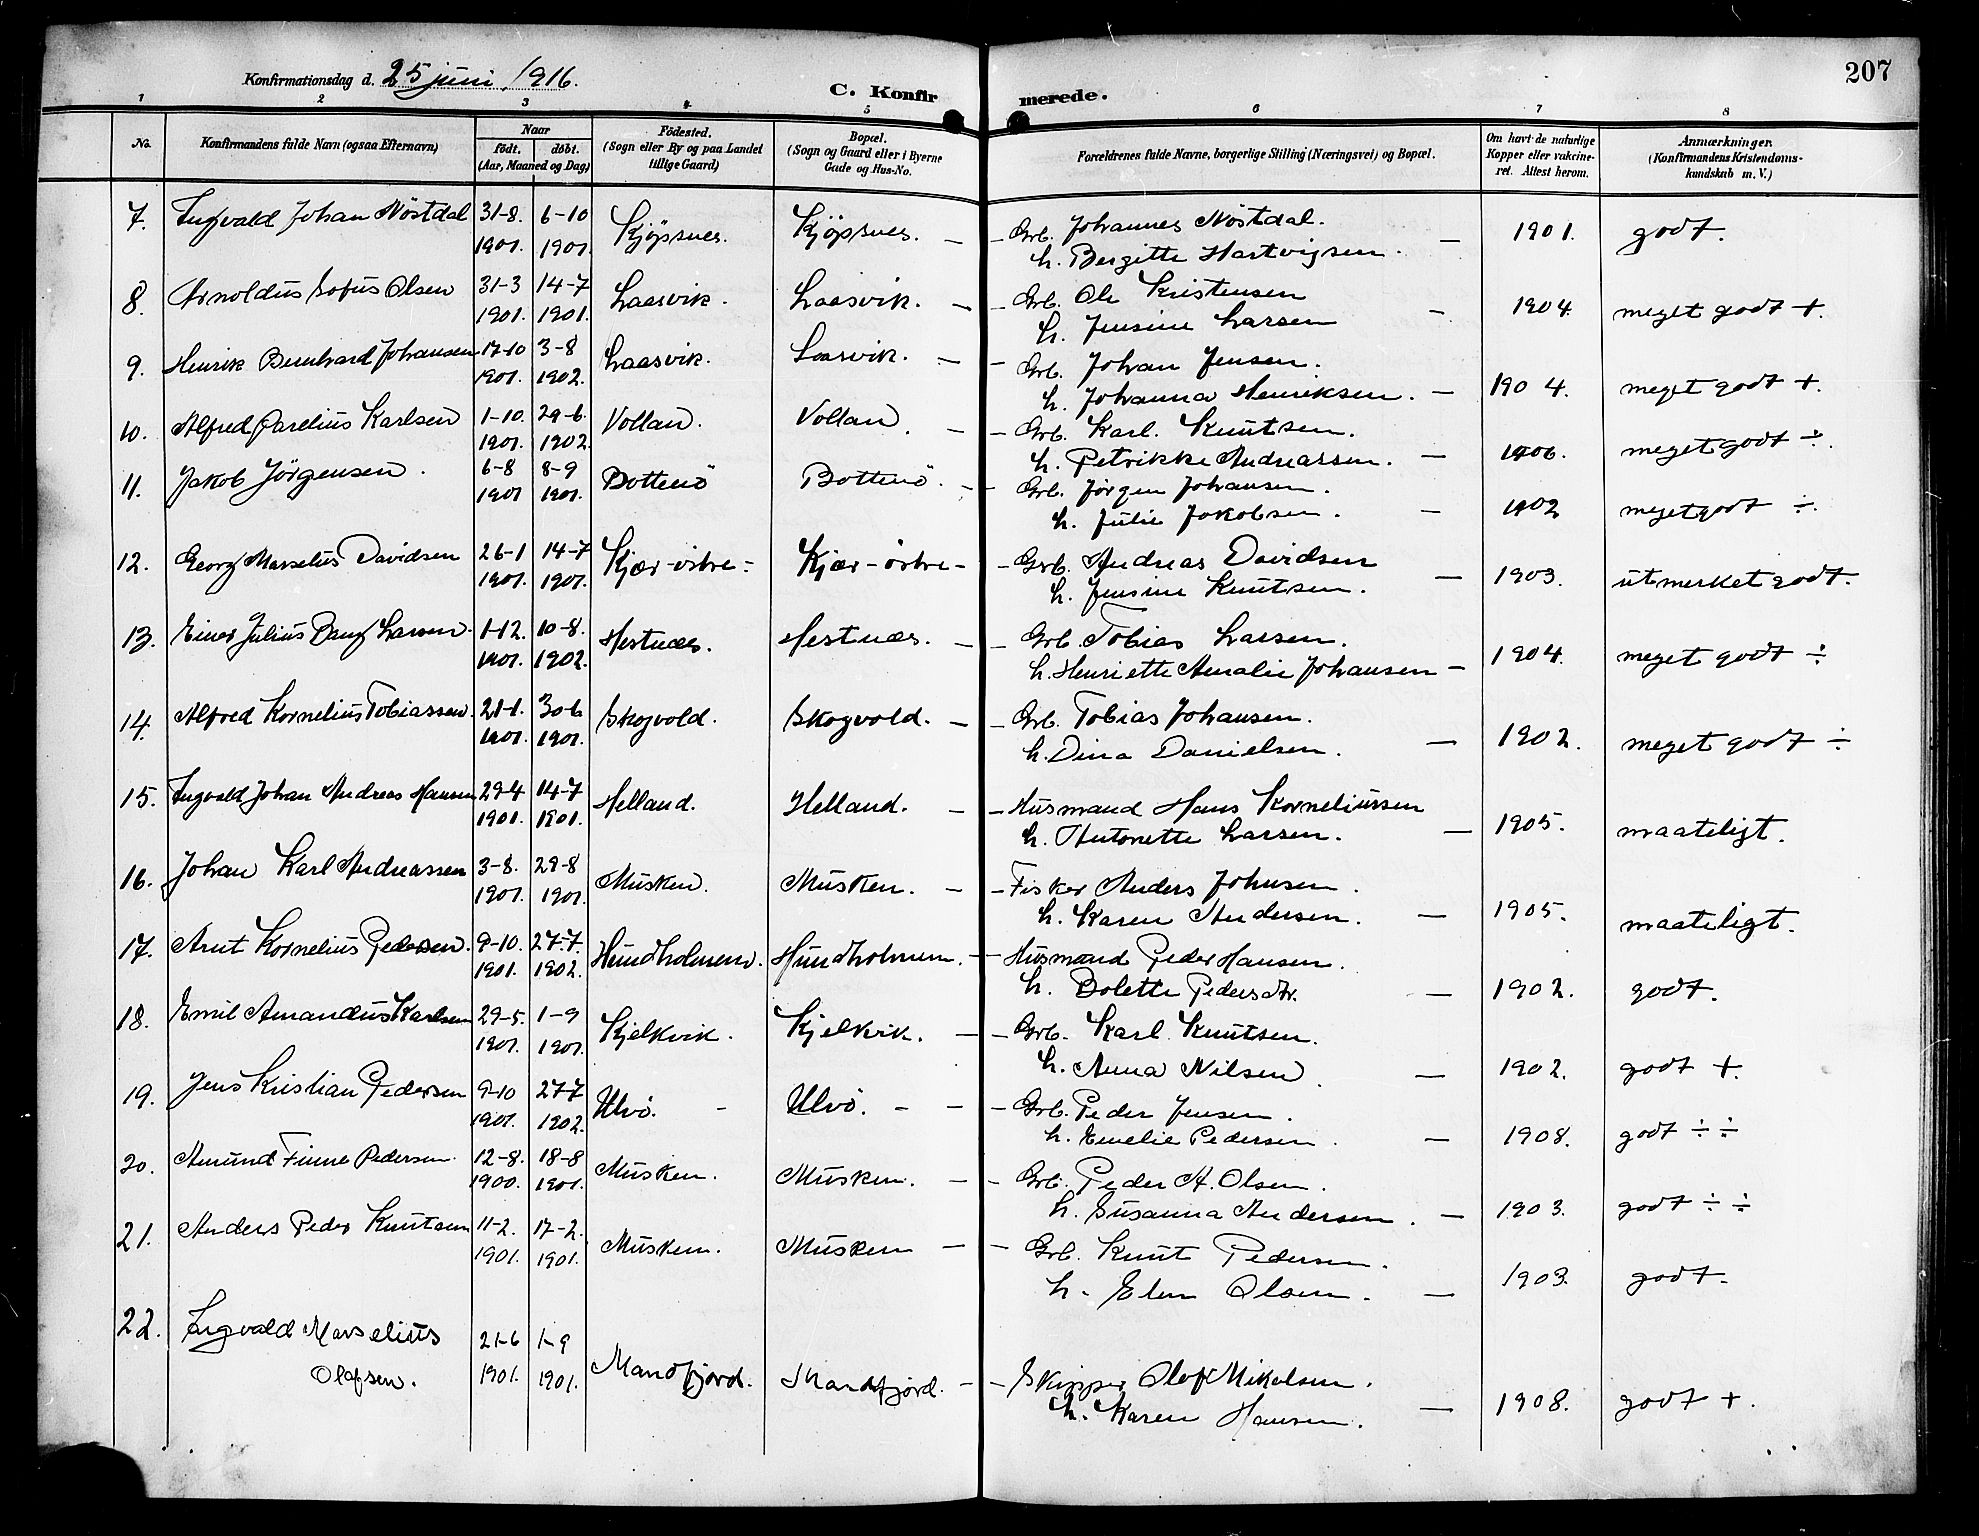 207
Konfirmationsdag d. 25 juni 1916.
C. Konfirmerede.
1 2 3 4 5 6 7 8
No. Konfirmandens fulde Navn (ogsaa Efternavn) Naar født. døbt. (Aar, Maaned og Dag) Fødested. (Sogn eller By og paa Landet tillige Gaard) Bopæl. (Sogn og Gaard eller i Byerne Gade og Hus-No. Forældrenes fulde Navne, borgerlige Stilling (Næringsvei) og Bopæl. Om havt de naturlige Kopper eller vakcineret. Attest herom. Anmærkninger. (Konfirmandens Kristendomskundskab m. V.)
7. Ingvald Johan Nöstdal 31-8. 6-10 Kjöpsnes. Kjöpsnes. — - Grb. Johannes Nöstdal. — 1901. godt.
1901. 1901. h. Bergitte Hartvigsen.
8. Arnoldus Sofus Olsen 31-3 14-7 Laasvik. Laasvik. — - Grb. Ole Kristensen — 1904. meget godt +.
1901. 1901. h. Jensine Larsen
9. Henrik Bernhard Johansen 17-10 3-8 Laasvik. Laasvik. — - Grb. Johan Jensen.
1901. 1902. h. Johanna Henriksen. — 1904. meget godt +.
10. Alfred Parelius Karlsen 1-10. 29-6. Vollan. Vollan. — - Grb. Karl. Knutsen.
1901. 1902. h. Petrikke Andreassen. — 1906. meget godt ÷.
11. Jakob Jörgensen. 6-8 8-9 Bottenö Bottenö. — - Grb. Jörgen Johansen.
1901 1901. h. Julie Jakobsen. — 1902 meget godt ÷.
12. Georg Marselius Davidsen 26-1 14-7 Kjær-östre - Kjær-östre - - Grb. Andreas Davidsen
1901. 1901. h. Jensine Knutsen. — 1903. utmerket godt.
13. Einar Julius Dang Larsen. 1-12. 10-8. Hestnæs. Hestnæs. — - Grb. Tobias Larsen.
1901. 1902. h. Henriette Amalie Johansen — 1904. meget godt ÷
14. Alfred Kornelius Tobiassen. 21-1. 30-6 Skogvold. Skogvold. — - Grb. Tobias Johansen.
1901. 1901. h. Dina Danielsen. — 1902. meget godt ÷
15. Ingvald Johan Andreas Hansen 29-4 14-7 Helland. Helland. — - Husmand Hans Korneliussen
1901. 1901. h. Antonette Larsen. — 1905. maateligt.
16. Johan Karl Andreassen 3-8. 29-8 Musken. Musken. — - Fisker Anders Johnsen.
1901. 1901. h. Karen Andersen. — 1905. maateligt.
17. Arnt Kornelius Pedersen. 9-10. 27-7. Hundholmen. Hundholmen. — Husmand Peder Hansen.
1901. 1902. h. Bolette Pedersdtr. — 1902. godt.
18. Emil Amandus Karlsen 29-5. 1-9 Kjelkvik. Kjelkvik. — - Grb. Karl Knutsen.
1901. 1901. h. Anna Nilsen. — 1902. godt +.
19. Jens Kristian Pedersen 9-10 27-7 Ulvö. - Ulvö. - — - Grb. Peder Jensen.
1901. 1902. h. Emelie Pedersen. — 1908. godt ÷ ÷
20. Amund Finne Pedersen. 12-8. 18-8 Musken. Musken. — - Grb. Peder A. Olsen.
1900. 1901. h. Susanna Andersen. — 1903. godt ÷ ÷
21. Anders Peder Knutsen 11-2. 17-2. Musken. Musken — - Grb. Knut Pedersen.
1901. 1901. h. Elen Olsen. — 1903. godt.
22. Ingvald Marselius 21-6 1-9
Olafsen. 1901. 1901. Mandfjord. Mandfjord. - - Skipper Olaf Mikalsen.
h. Karen Hansen. — 1908. godt +.